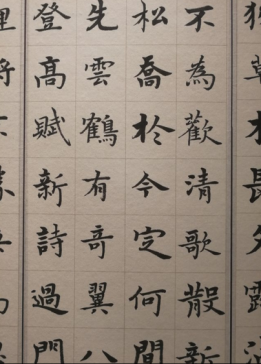 不為歡清歌散新
松喬於今定何間
先雲鶴有奇翼八
登高賦新詩過門